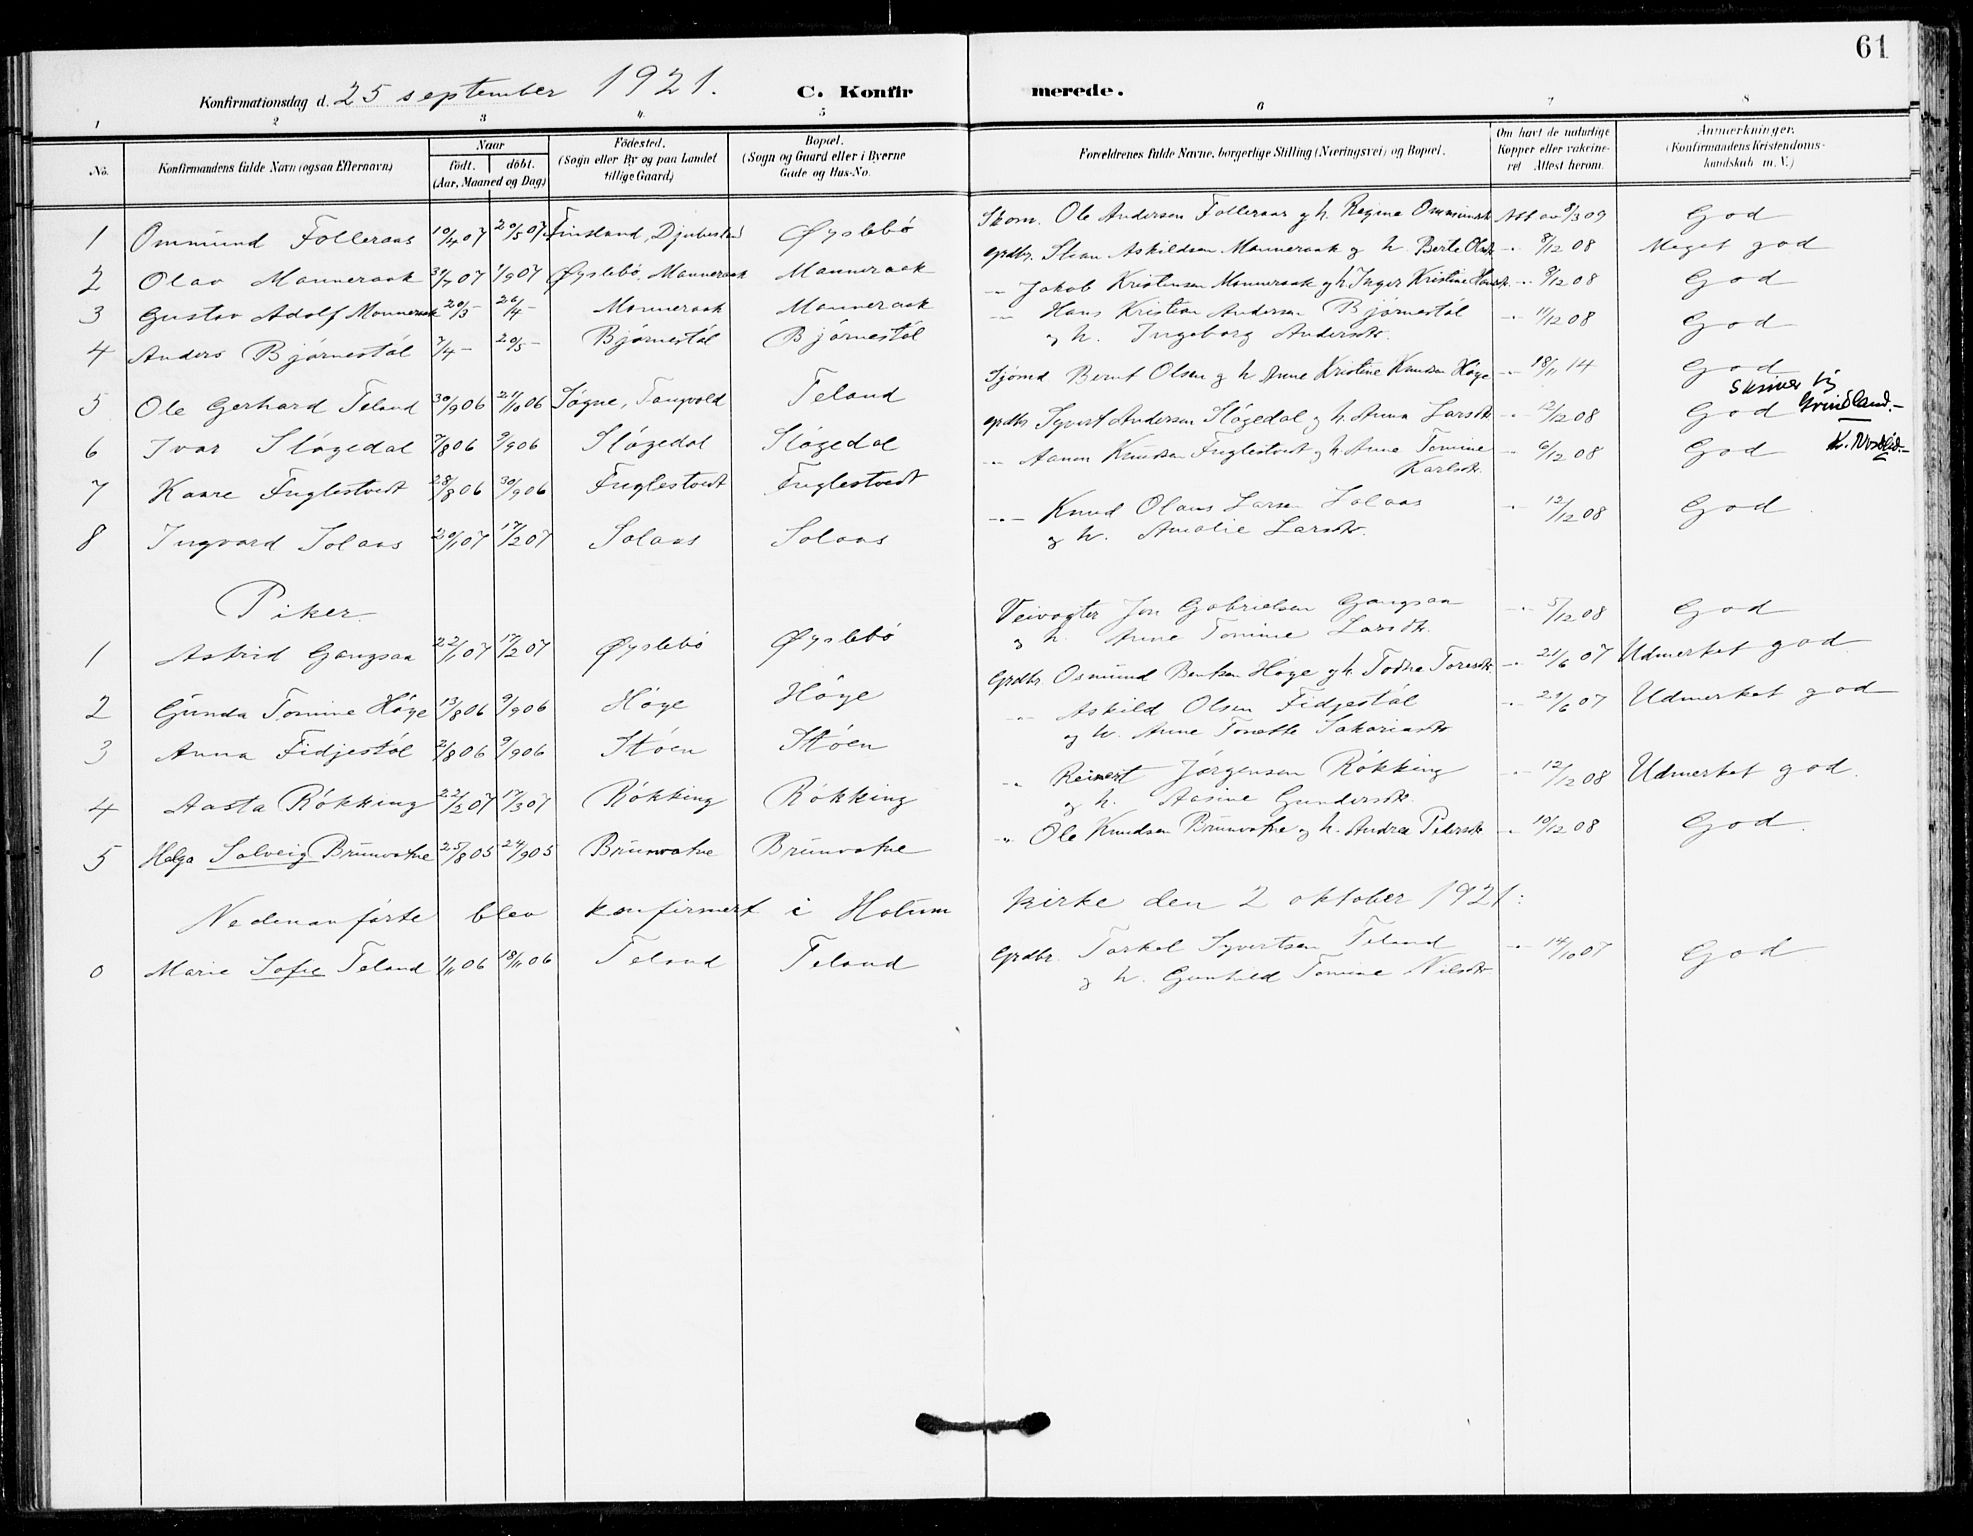 61
Konfirmationsdag d. 25 september 1921. C. Konfir merede.
1 2 3 4 5 6 7 8
No. Konfirmandens fulde Navn (ogsaa Efternavn) Naar født. døbt. (Aar, Maaned og Dag.) Fødested. (Sogn eller By og paa Landet tillige Gaard) Bopæl. (Sogn og Gaard eller i Byerne Gade og Hus-No. Forældrenes fulde Navne, borgerlige Stilling (Næringsvei) og Bopæl. Om havt de naturlige Kopper eller vaksineret Attest herom. Anmerkninger. (Konfirmandens Kristendomskundskab m. V.)
1 Ommund Folleraas 10/4 07 20/5 07 Finsland, Øyslebø Skom. Ole Andersen Folleraas og h. Regine Att av 8/3 09 God
2 Olav Manneraak 07 1/9 07 Øyslebø, Manneraak Manneraak grdbr. Askildsen Manneraak og h. Berte - 8/12 08 Meget god
3 Gustav Adolf Manneraak 20/3 - 26/4 - Manneraak Manneraak -"- Jakob Kristensen Manneraak og h. Inger Kristine - 9/12 08 God
4 Anders Bjørnestøl 7/4 - 20/5 - Bjørnestøl Bjørnestøl -"- Hans Kristian Andersen Bjørnestøl - 11/12 08 God
og h. Ingeborg Andersdtr.
5 Ole Gerhard Teland 30/9 06 21/10 06 Søgne, Tangvold Teland Sjømd Bernt Olsen og h Anne Kristine Knudsen Høye - 18/11 14 God
Skriver sig Grindland.-
6 Ivar Sløgedal 7/8 06 9/9 06 Sløgedal Sløgedal grdbr Syvert Andersen Sløgedal og h. Anna Larsdtr - 12/12 08 God
7 Kaare Fuglestvedt 28/8 06 30/9 06 Fuglestvedt Fuglestvedt -"- Aanen Knudsen Fuglestvedt og h. Anne Tomine Karlsdtr. - 6/12 08 God
8 Ingvard Solaas 20/1 07 17/2 07 Solaas Solaas -"- Knud Olaus Larsen Solaas - 12/12 08 God
og h. Amalie Larsdtr.
Piker.
1 Astrid Gangsaa 22/1 07 17/2 07 Øyslebø Øyslebø Veivogter Jon Gabrielsen Gangsaa - 5/12 08 God
og h. Anne Tomine Larsdtr.
2 Gunda Tomine Høye 13/8 06 9/9 06 Høye Høye Grdbr. Osmund Bentsen Høye og h. Todne Toresdtr - 21/6 07 Udmerket god
3 Anna Fidjestøl 2/8 06 9/9 06 Støen Støen -"- Askild Olsen Fidjestøl - 21/6 07 Udmerket god
og h. Anne Tonette Sakariasdtr
4 Aasta Røkking 22/2 07 17/3 07 Røkking Røkking -"- Reinert Jørgensen Røkking - 12/12 08 Udmerket god.
og h. Aasine Gundersdtr.
5 Helga Solveig Brunvatne 25/8 05 24/9 05 Brunvatne Brunvatne -"- Ole Knudsen Brunvatne og h. Andrea Pedersdtr - 10/12 08 God.
Nedenanførte blev konfirmert i Holum kirke den 2 oktober 1921:
0 Marie Sofie Teland 1/11 06 18/11 06 Teland Teland Grdbr. Torkel Syvertsen Teland - 14/10 07 God
og h. Gunhild Tomine Nilsdtr